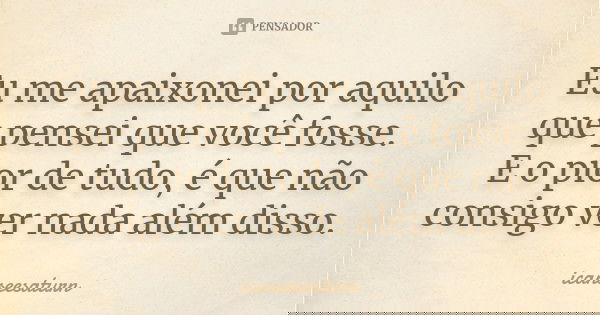 PENSADOR
Eu me apaixonei por aquilo
que pensei que você fosse.
E o pior de tudo, é que não
consigo ver nada além disso.
icanseesaturn